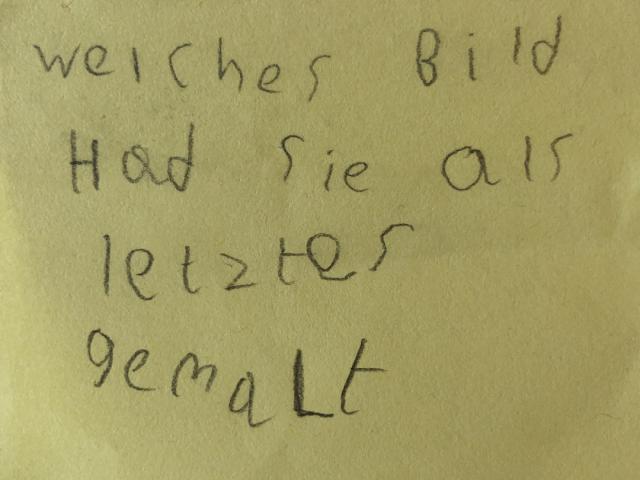 welches Bild
Had sie als
letztes
gemaLt